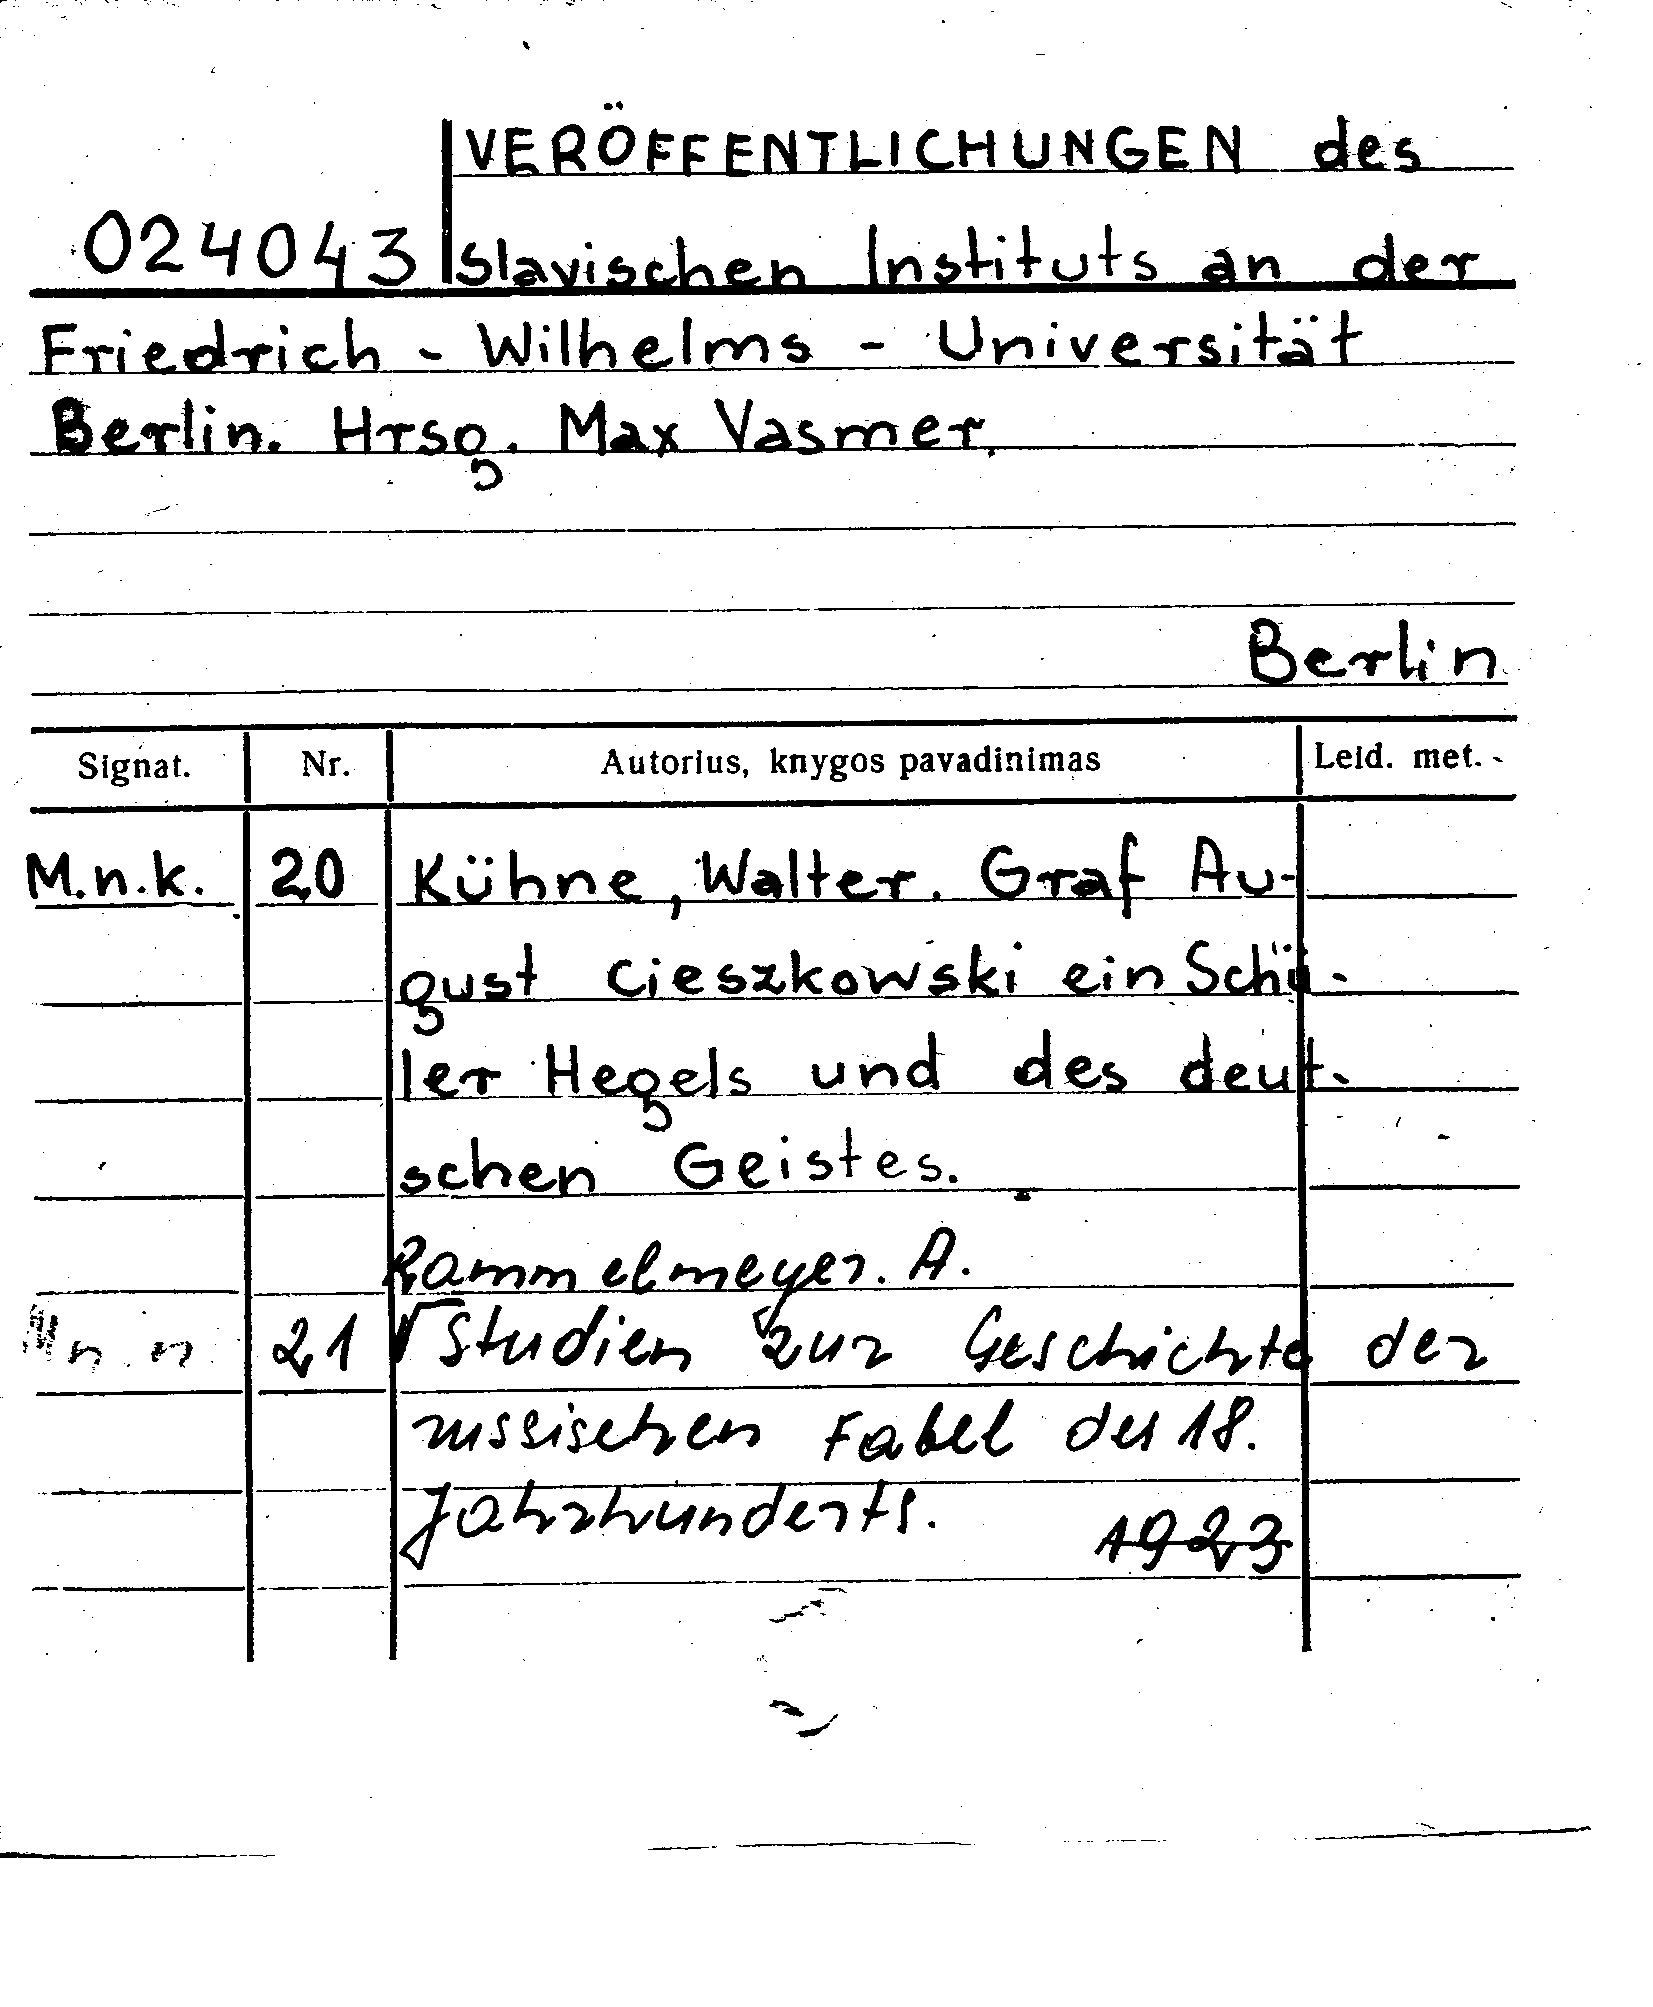 VERÖFFENTLICHUNGEN des
024043 Slavischen Instituts an der
Friedrich - Wilhelms - Universität
Berlin. Hrsg. Max Vasmer.
Berlin
Signat. Nr. Autorius, knygos pavadinimas Leid. met.
M.n.k. 20 Kühne, Walter. Graf Au-
gust Cieszkowski ein Schü-
ler Hegels und des deut-
schen Geistes.
Rammelmeyer. A.
n n 21 Studien zur Geschichte der
russischen Fabel des 18.
Jahrhunderts. 1923